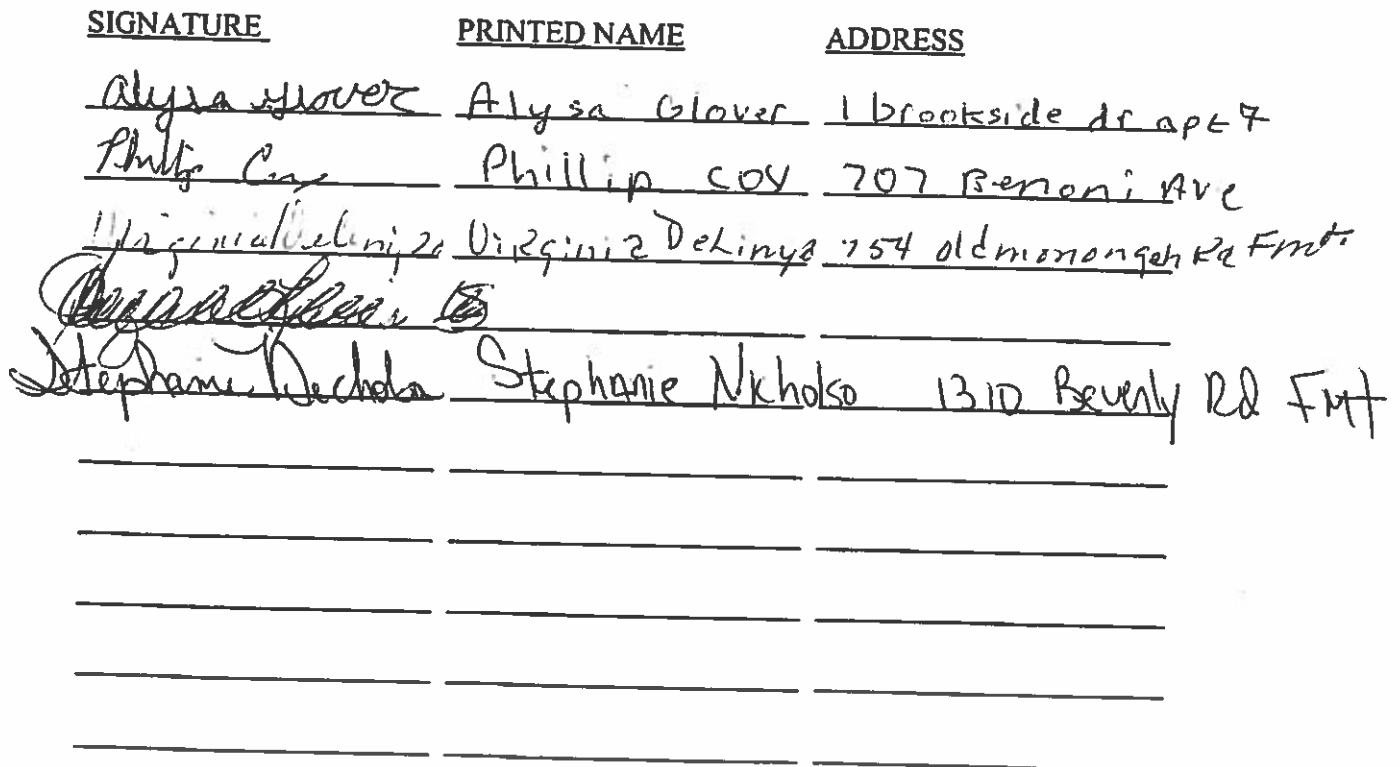 SIGNATURE PRINTED NAME ADDRESS
Alysa Glover Alysa Glover 1 brookside dr apt 7
Phillip Phillip COX 707 Benoni Ave
Virginia Virginia 754 old monongah Rd Fmt
Stephanie Nicholson Stephanie Nicholso 1310 Beverly Rd FMT